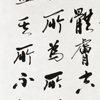 體膚空
所為所
其所不